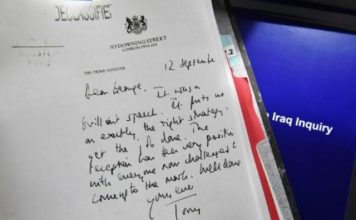 DECLASSIFIED
10 DOWNING STREET
LONDON SW1A 2AA
THE PRIME MINISTER
12 September
Dear George,
It was a
brilliant speech. It puts us
on exactly the right strategy
to get the job done. The
reception has been very positive
with everyone now challenged to
come up to the mark. Well done.
Yours ever
Tony
7.2
e Iraq Inquiry